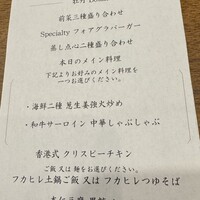 牡丹
前菜三種盛り合わせ
Specialty フォアグラバーガー
蒸し点心二種盛り合わせ
本日のメイン料理
下記よりお好みのメイン料理を
一つお選びください。
・海鮮二種 葱生姜強火炒め
・和牛サーロイン 中華しゃぶしゃぶ
香港式 クリスピーチキン
ご飯又は麺をお選びください。
フカヒレ土鍋ご飯 又は フカヒレつゆそば